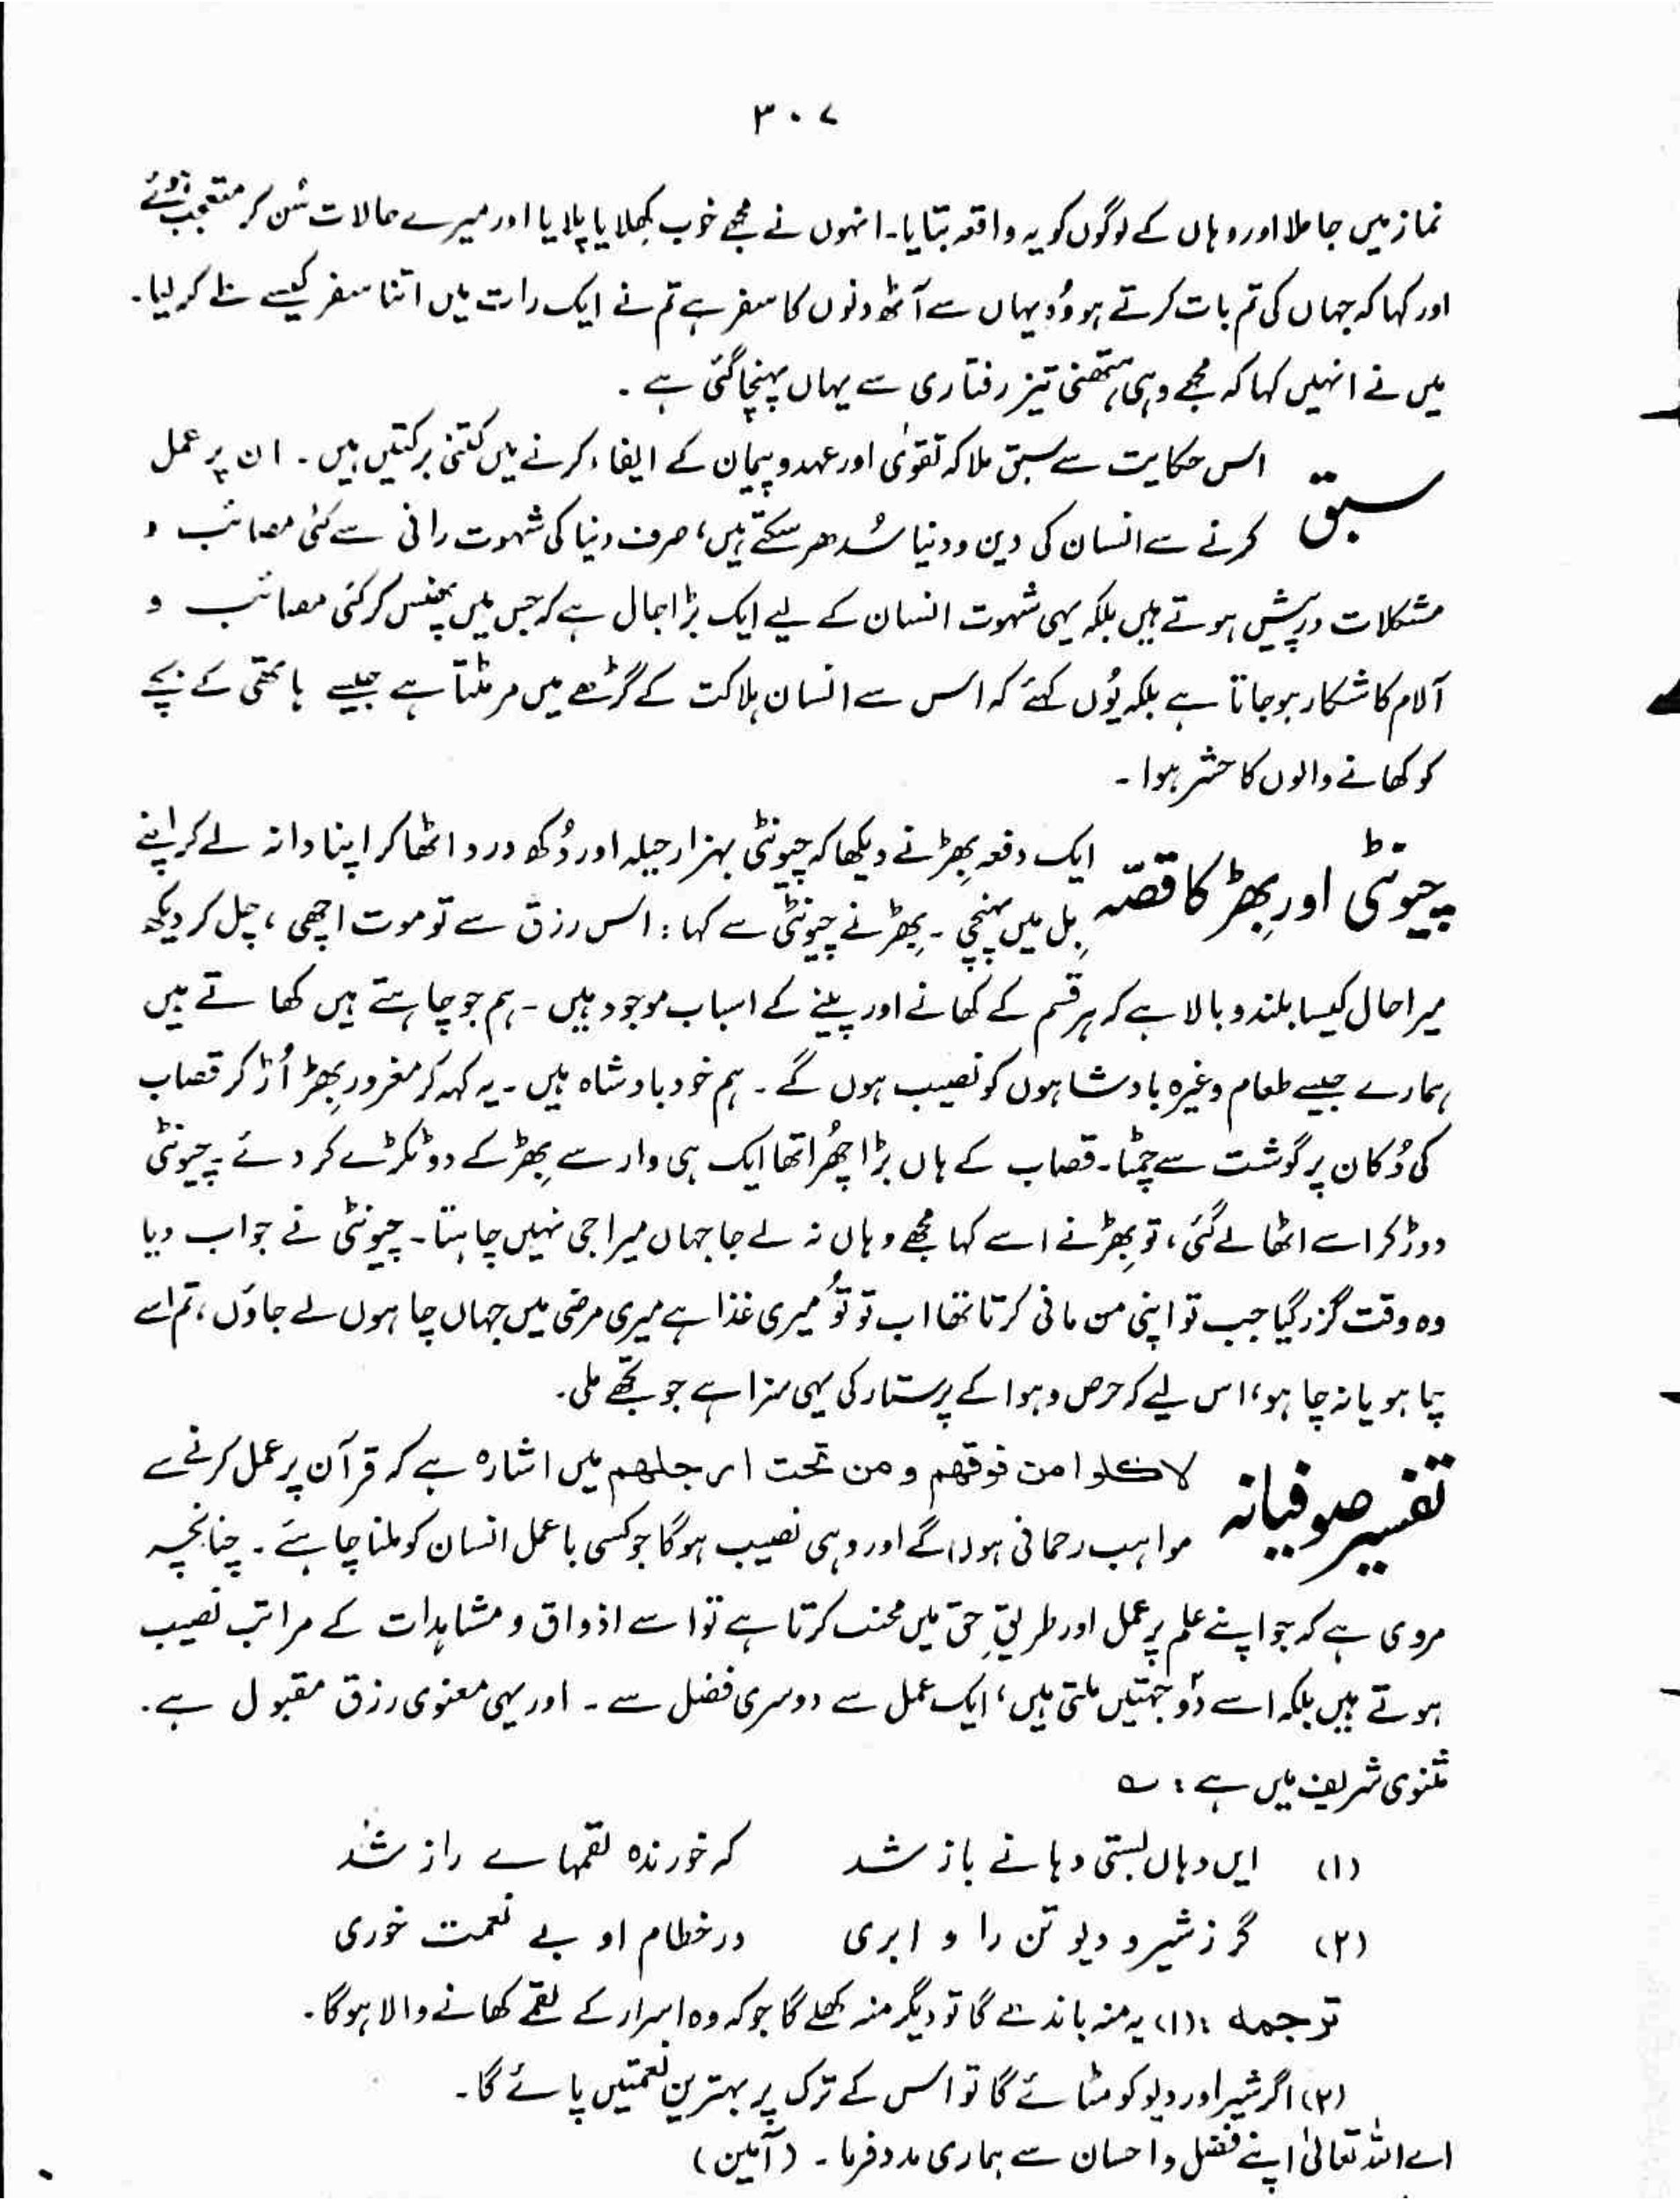 ٣٠٧
نماز میں جا ملا اور وہاں کے لوگوں کو یہ واقعہ بتایا۔ انہوں نے مجھے خوب کھلایا پلایا اور میرے حالات سُن کر متعجب ہوئے
اور کہا کہ جہاں کی تم بات کرتے ہو وُہ یہاں سے آٹھ دنوں کا سفر ہے تم نے ایک رات میں اتنا سفر کیسے طے کر لیا۔
میں نے انہیں کہا کہ مجھے وہی ہتھنی تیز رفتاری سے یہاں پہنچا گئی ہے۔
سبق اس حکایت سے سبق ملا کہ تقویٰ اور عہد و پیمان کے ایفاء کرنے میں کتنی برکتیں ہیں۔ ان پر عمل
کرنے سے انسان کی دین و دنیا سُدھر سکتے ہیں، صرف دنیا کی شہوت رانی سے کئی مصائب و
مشکلات درپیش ہوتے ہیں بلکہ یہی شہوت انسان کے لیے ایک بڑا جال ہے کہ جس میں پھنس کر کئی مصائب و
آلام کا شکار ہو جاتا ہے بلکہ یُوں کہئے کہ اس سے انسان ہلاکت کے گڑھے میں مر مٹتا ہے جیسے ہاتھی کے بچے
کو کھانے والوں کا حشر ہوا۔
چیونٹی اور بِھڑ کا قصّہ ایک دفعہ بِھڑ نے دیکھا کہ چیونٹی بہزار حیلہ اور دُکھ درد اٹھا کر اپنا دانہ لے کر اپنے
بِل میں پہنچی۔ بِھڑ نے چیونٹی سے کہا: اس رزق سے تو موت اچھی، چل کر دیکھ
میرا حال کیسا بلند و بالا ہے کہ ہر قسم کے کھانے اور پینے کے اسباب موجود ہیں۔ ہم جو چاہتے ہیں کھاتے ہیں
ہمارے جیسے طعام وغیرہ بادشاہوں کو نصیب ہوں گے۔ ہم خود بادشاہ ہیں۔ یہ کہہ کر مغرور بِھڑ اُڑ کر قصاب
کی دُکان پر گوشت سے چمٹا۔ قصاب کے ہاں بڑا چُھرا تھا ایک ہی وار سے بِھڑ کے دو ٹکڑے کر دئے۔ چیونٹی
دوڑ کر اسے اٹھا لے گئی، تو بِھڑ نے اسے کہا مجھے وہاں نہ لے جا جہاں میرا جی نہیں چاہتا۔ چیونٹی نے جواب دیا
وہ وقت گزر گیا جب تو اپنی من مانی کرتا تھا اب تو تُو میری غذا ہے میری مرضی میں جہاں چاہوں لے جاؤں، تم اسے
چاہو یا نہ چاہو، اس لیے کہ حرص و ہوا کے پرستار کی یہی سزا ہے جو تجھے ملی۔
تفسیر صوفیانہ لاکلوا من فوقهم ومن تحت ارجلهم میں اشارہ ہے کہ قرآن پر عمل کرنے سے
مواہب رحمانی ہوں گے اور وہی نصیب ہوگا جو کسی باعمل انسان کو ملنا چاہئے۔ چنانچہ
مروی ہے کہ جو اپنے علم پر عمل اور طریقِ حق میں محنت کرتا ہے تو اسے اذواق و مشاہدات کے مراتب نصیب
ہوتے ہیں بلکہ اسے دو جہتیں ملتی ہیں، ایک عمل سے دوسری فضل سے۔ اور یہی معنوی رزق مقبول ہے۔
مثنوی شریف میں ہے: ؎
(۱) ایں دہاں بستی دہانے باز شد کہ خورندہ لقمہاے راز شُد
(۲) گر ز شیر و دیو تن را و ابری در خطام او بے نعمت خوری
ترجمہ: (۱) یہ منہ باندھے گا تو دیگر منہ کھلے گا جو کہ وہ اسرار کے لقمے کھانے والا ہوگا۔
(۲) اگر شیر اور دیو کو مٹائے گا تو اس کے ترک پر بہترین نعمتیں پائے گا۔
اے اللہ تعالیٰ اپنے فضل و احسان سے ہماری مدد فرما۔ (آمین)